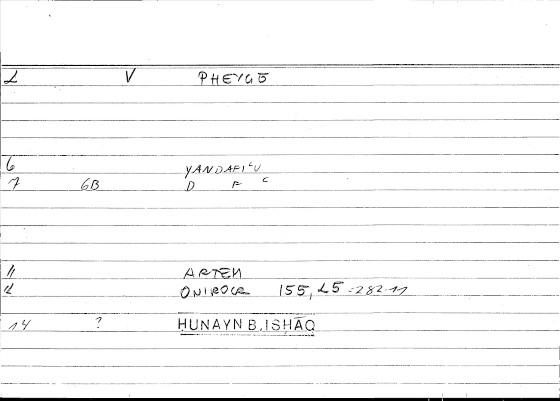 2 V PHEYGŌ
6 YANDAFIʿU
7 6B D F C
11 ARTEM
12 ONIROCR 155, 15 = 282.11
14 ? ḤUNAYN B. ISḤĀQ